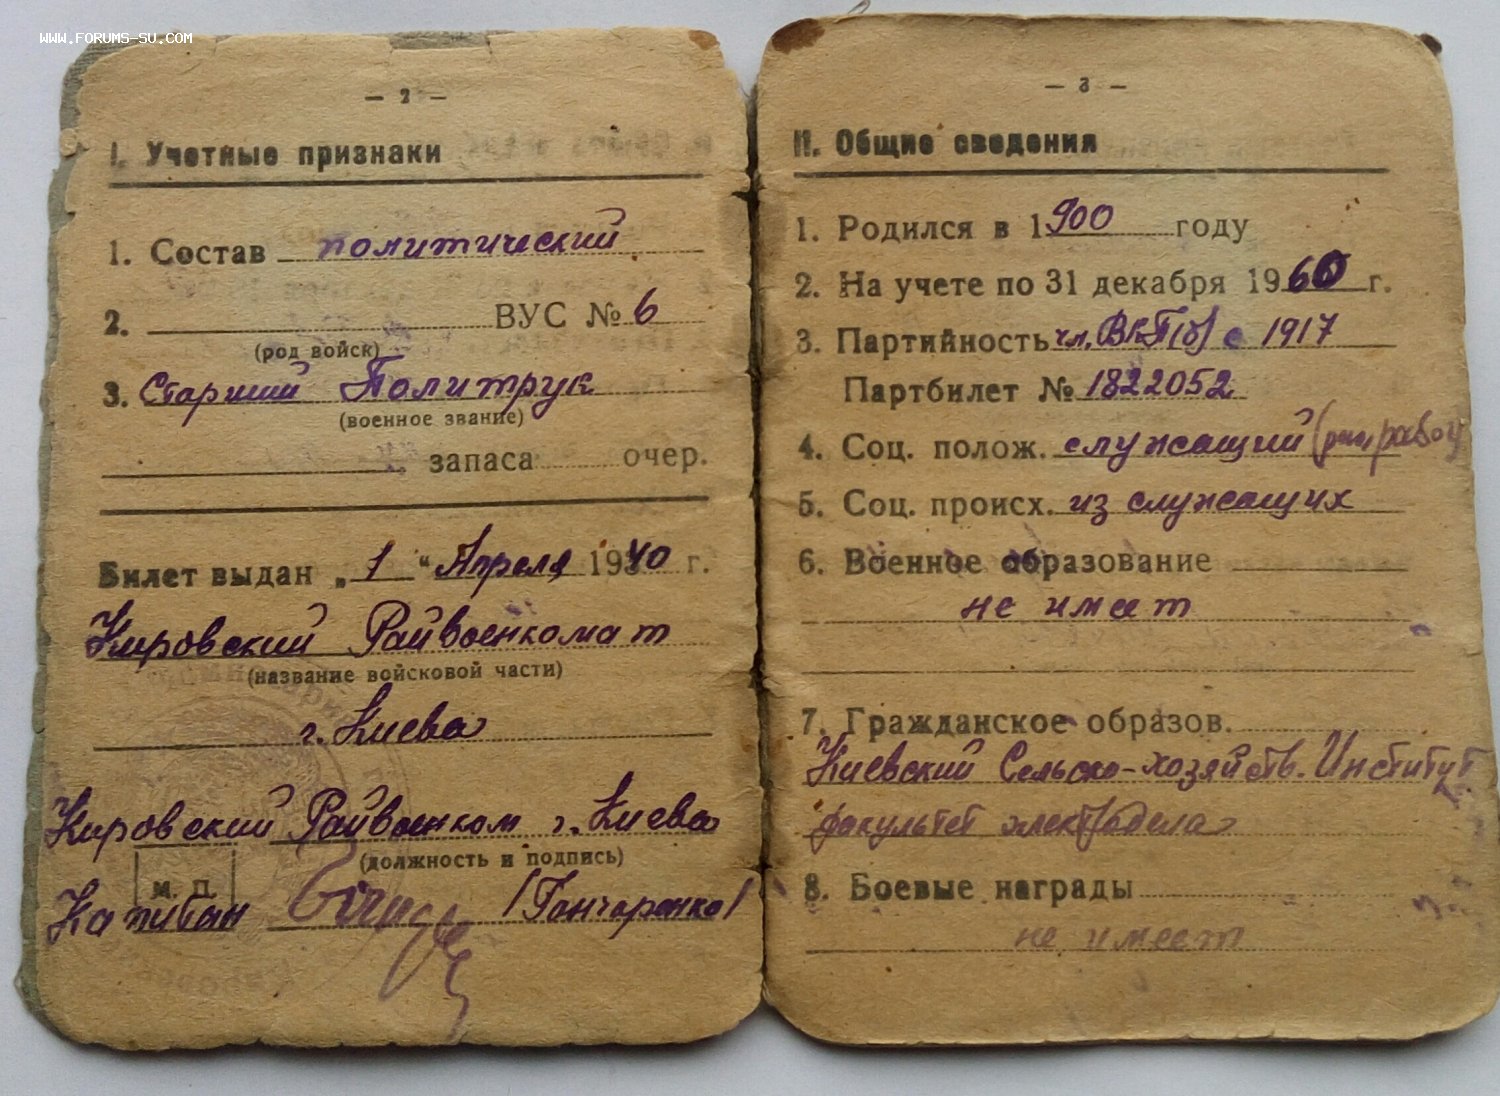 WWW.FORUMS-SU.COM
— 2 —
I. Учетные признаки
1. Состав политический
2. ВУС № 6
(род войск)
3. Старший Политрук
(военное звание)
запаса очер.
Билет выдан „1“ Апреля 1940 г.
Кировский Райвоенкомат
(название войсковой части)
г. Киева
Кировский Райвоенком г. Киева
(должность и подпись)
М. П.
Капитан /Гончаренко/
— 3 —
II. Общие сведения
1. Родился в 1900 году
2. На учете по 31 декабря 1960 г.
3. Партийность чл. ВКП(б) с 1917
Партбилет № 1822052
4. Соц. полож. служащий
5. Соц. происх. из служащих
6. Военное образование
не имеет
7. Гражданское образов.
Киевский Сельско-хозяйств. Институт
факультет электродела
8. Боевые награды
не имеет